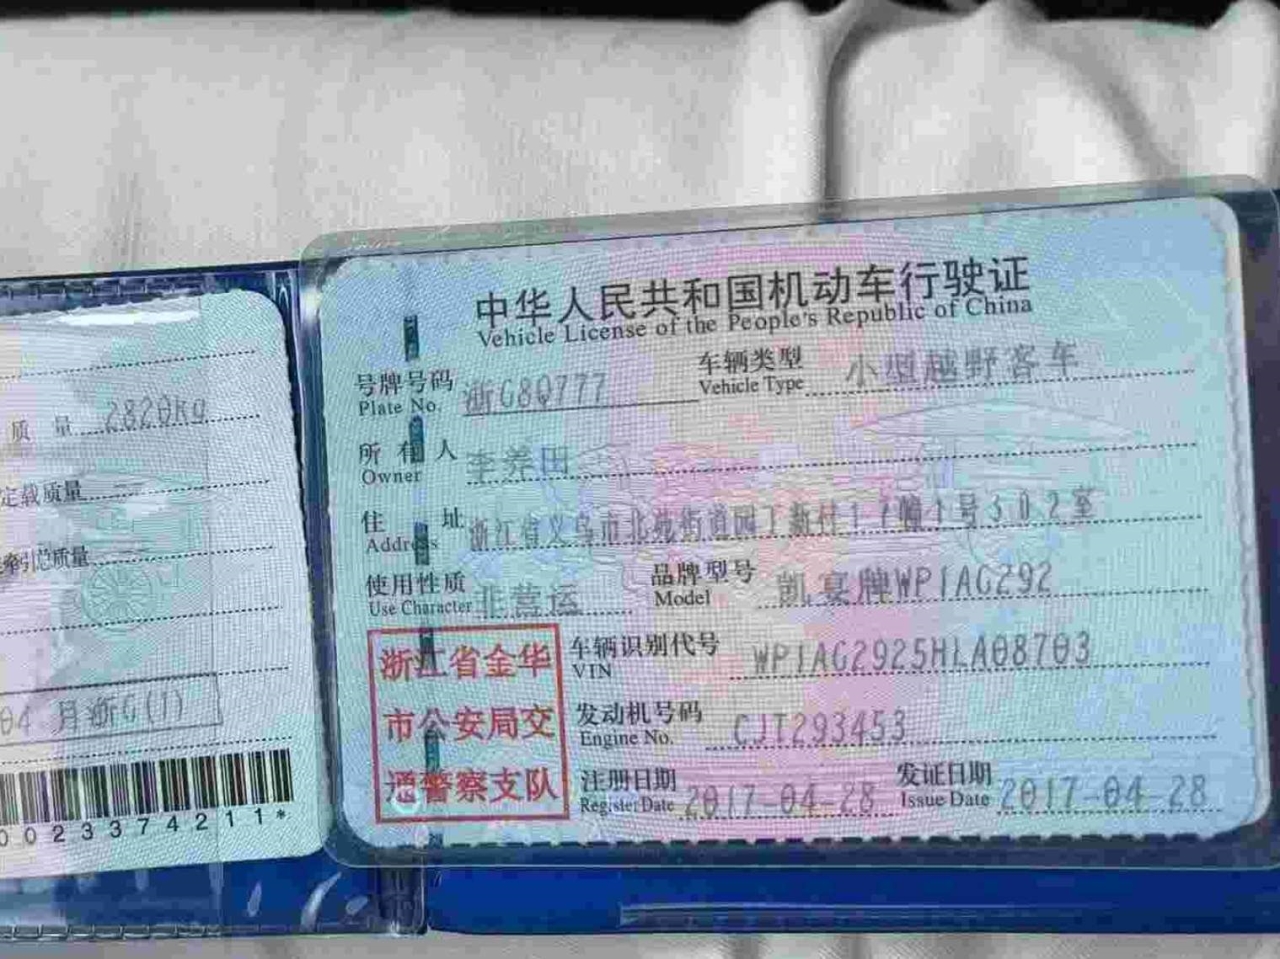 质 量 2820kg
定载质量 --
牵引总质量 --
04 月浙G(1)
0023374211*
中华人民共和国机动车行驶证
Vehicle License of the People's Republic of China
号牌号码 浙G8Q777 车辆类型 小型越野客车
Plate No. Vehicle Type
所有人 李养田
Owner
住 址 浙江省义乌市北苑街道园丁新村17幢1号302室
Address
使用性质 非营运 品牌型号 凯宴牌WP1AG292
Use Character Model
浙江省金华
市公安局交
通警察支队
车辆识别代号 WP1AG2925HLA08703
VIN
发动机号码 CJT293453
Engine No.
注册日期 2017-04-28 发证日期 2017-04-28
Register Date Issue Date